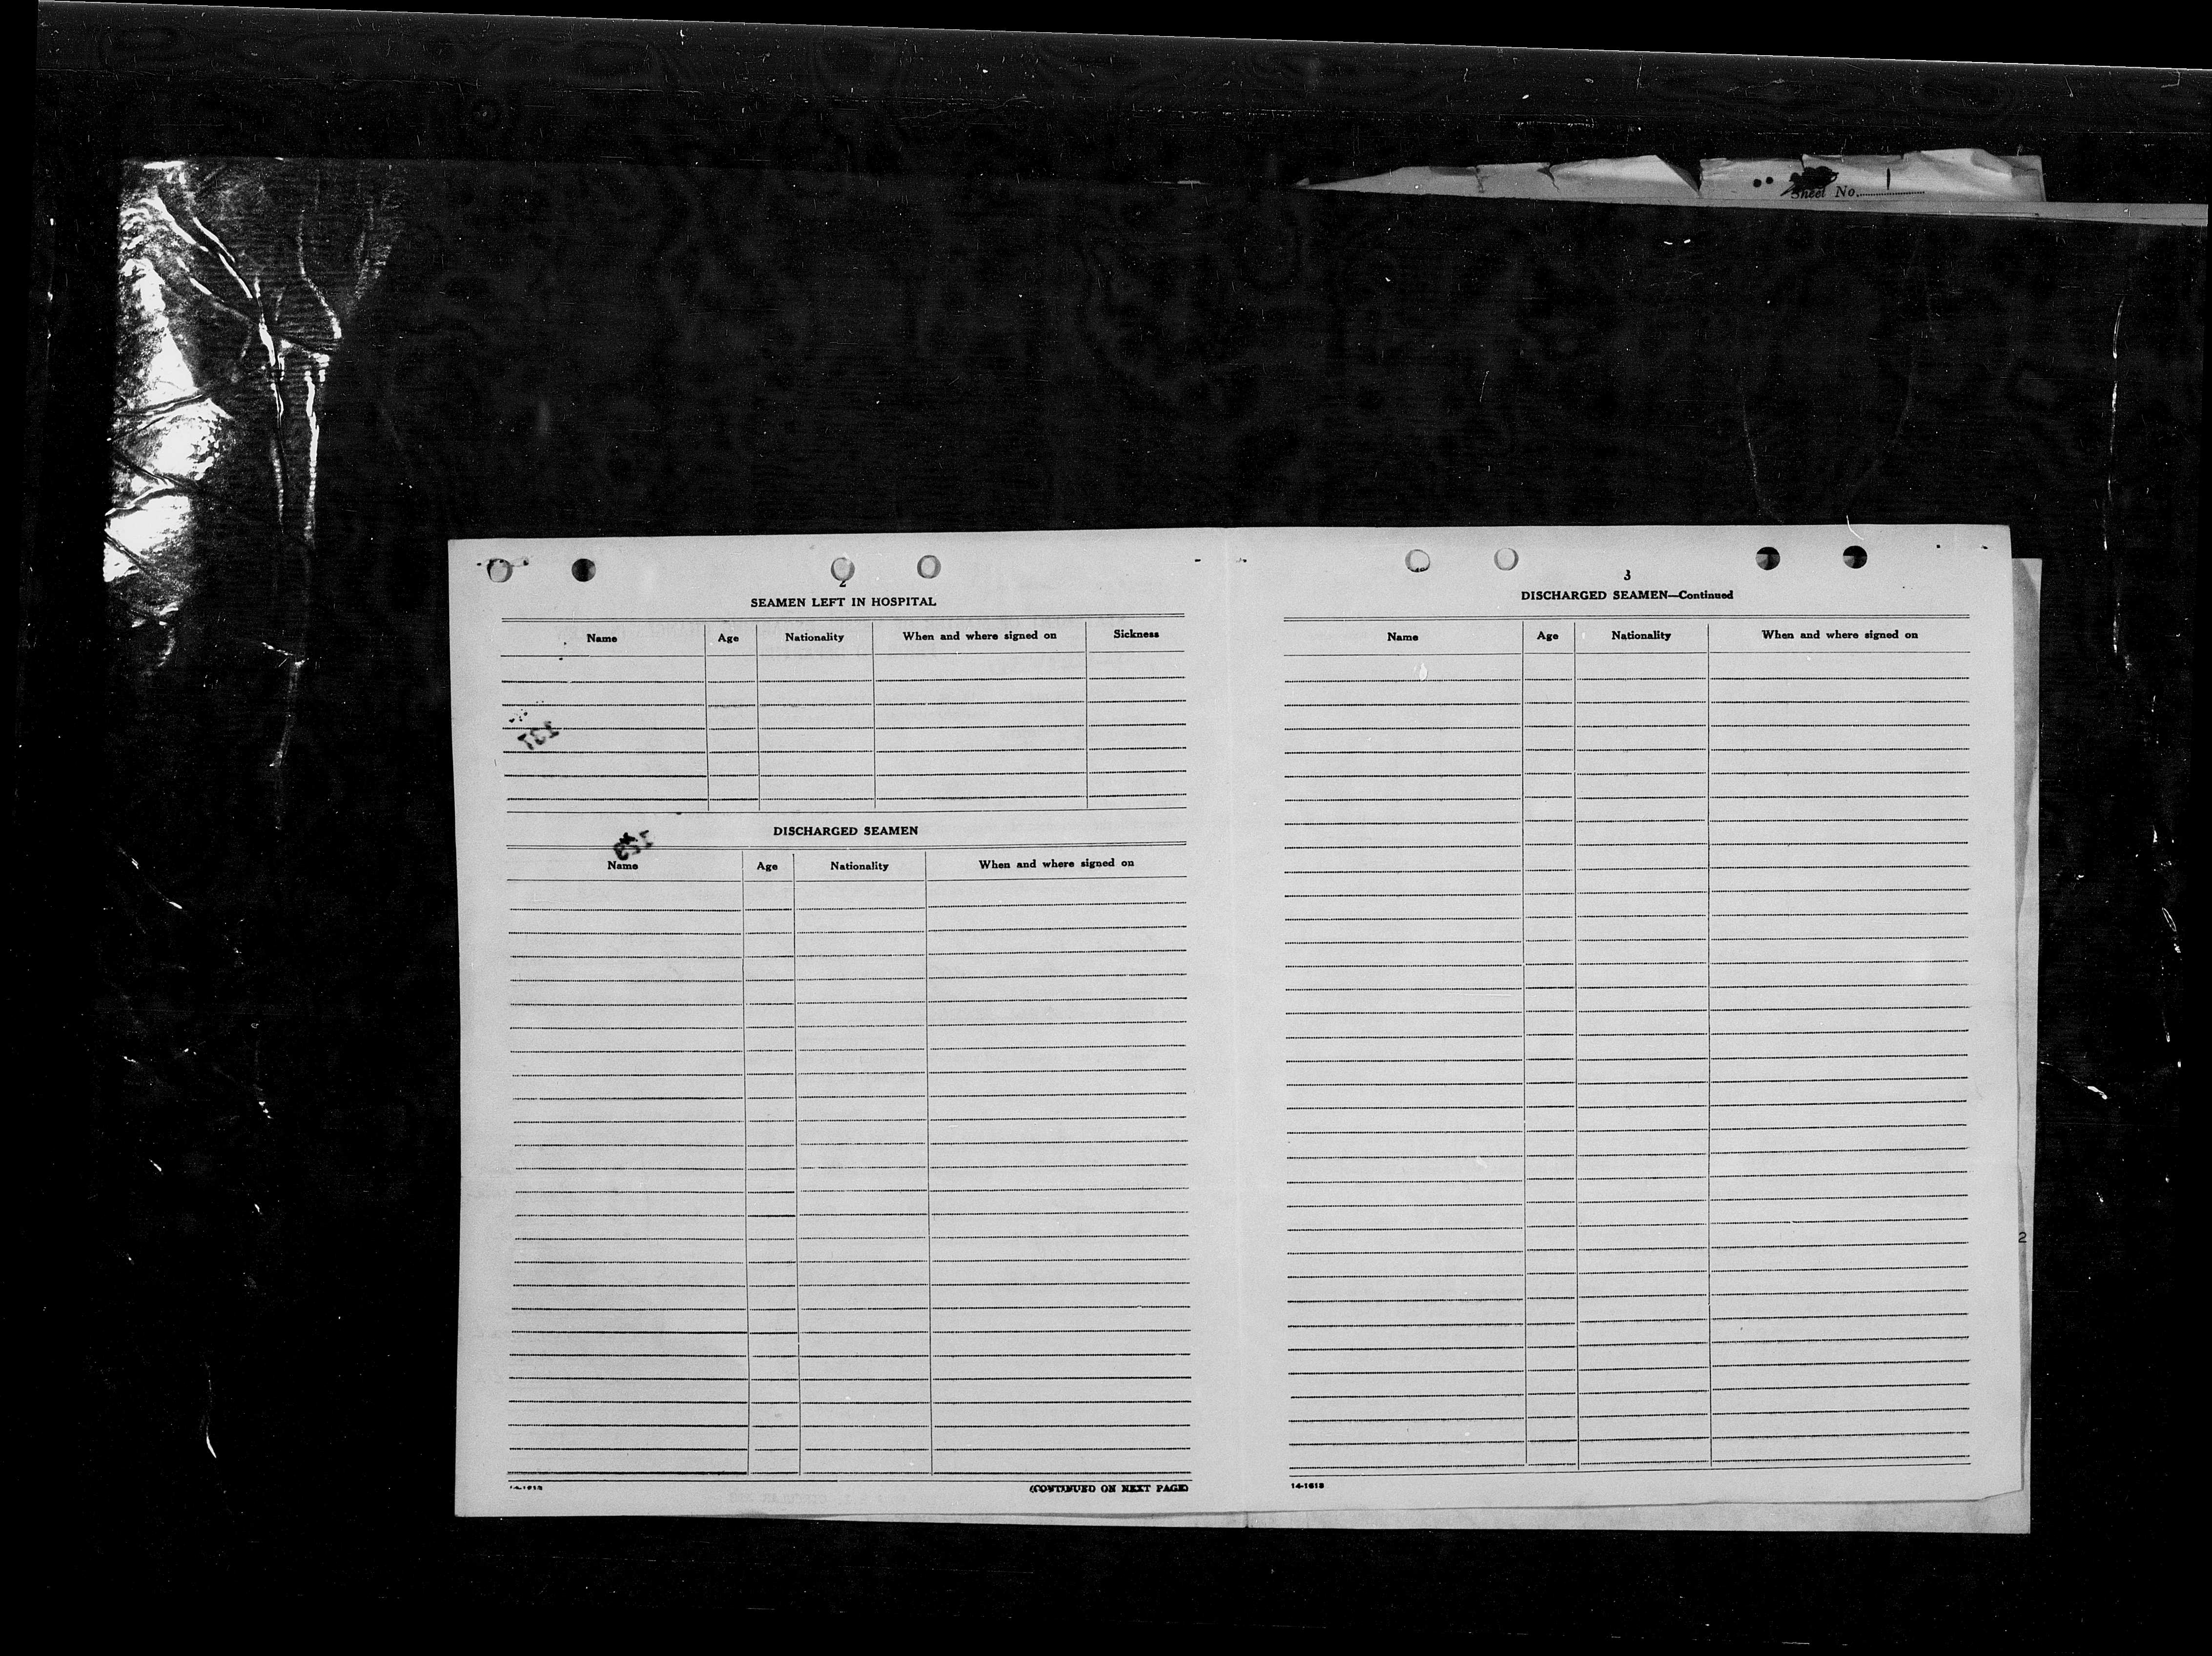 Sheet No. 1
2
SEAMEN LEFT IN HOSPITAL
Name Age Nationality When and where signed on Sickness
DISCHARGED SEAMEN
Name Age Nationality When and where signed on
(CONTINUED ON NEXT PAGE)
3
DISCHARGED SEAMEN—Continued
Name Age Nationality When and where signed on
14-1613
2